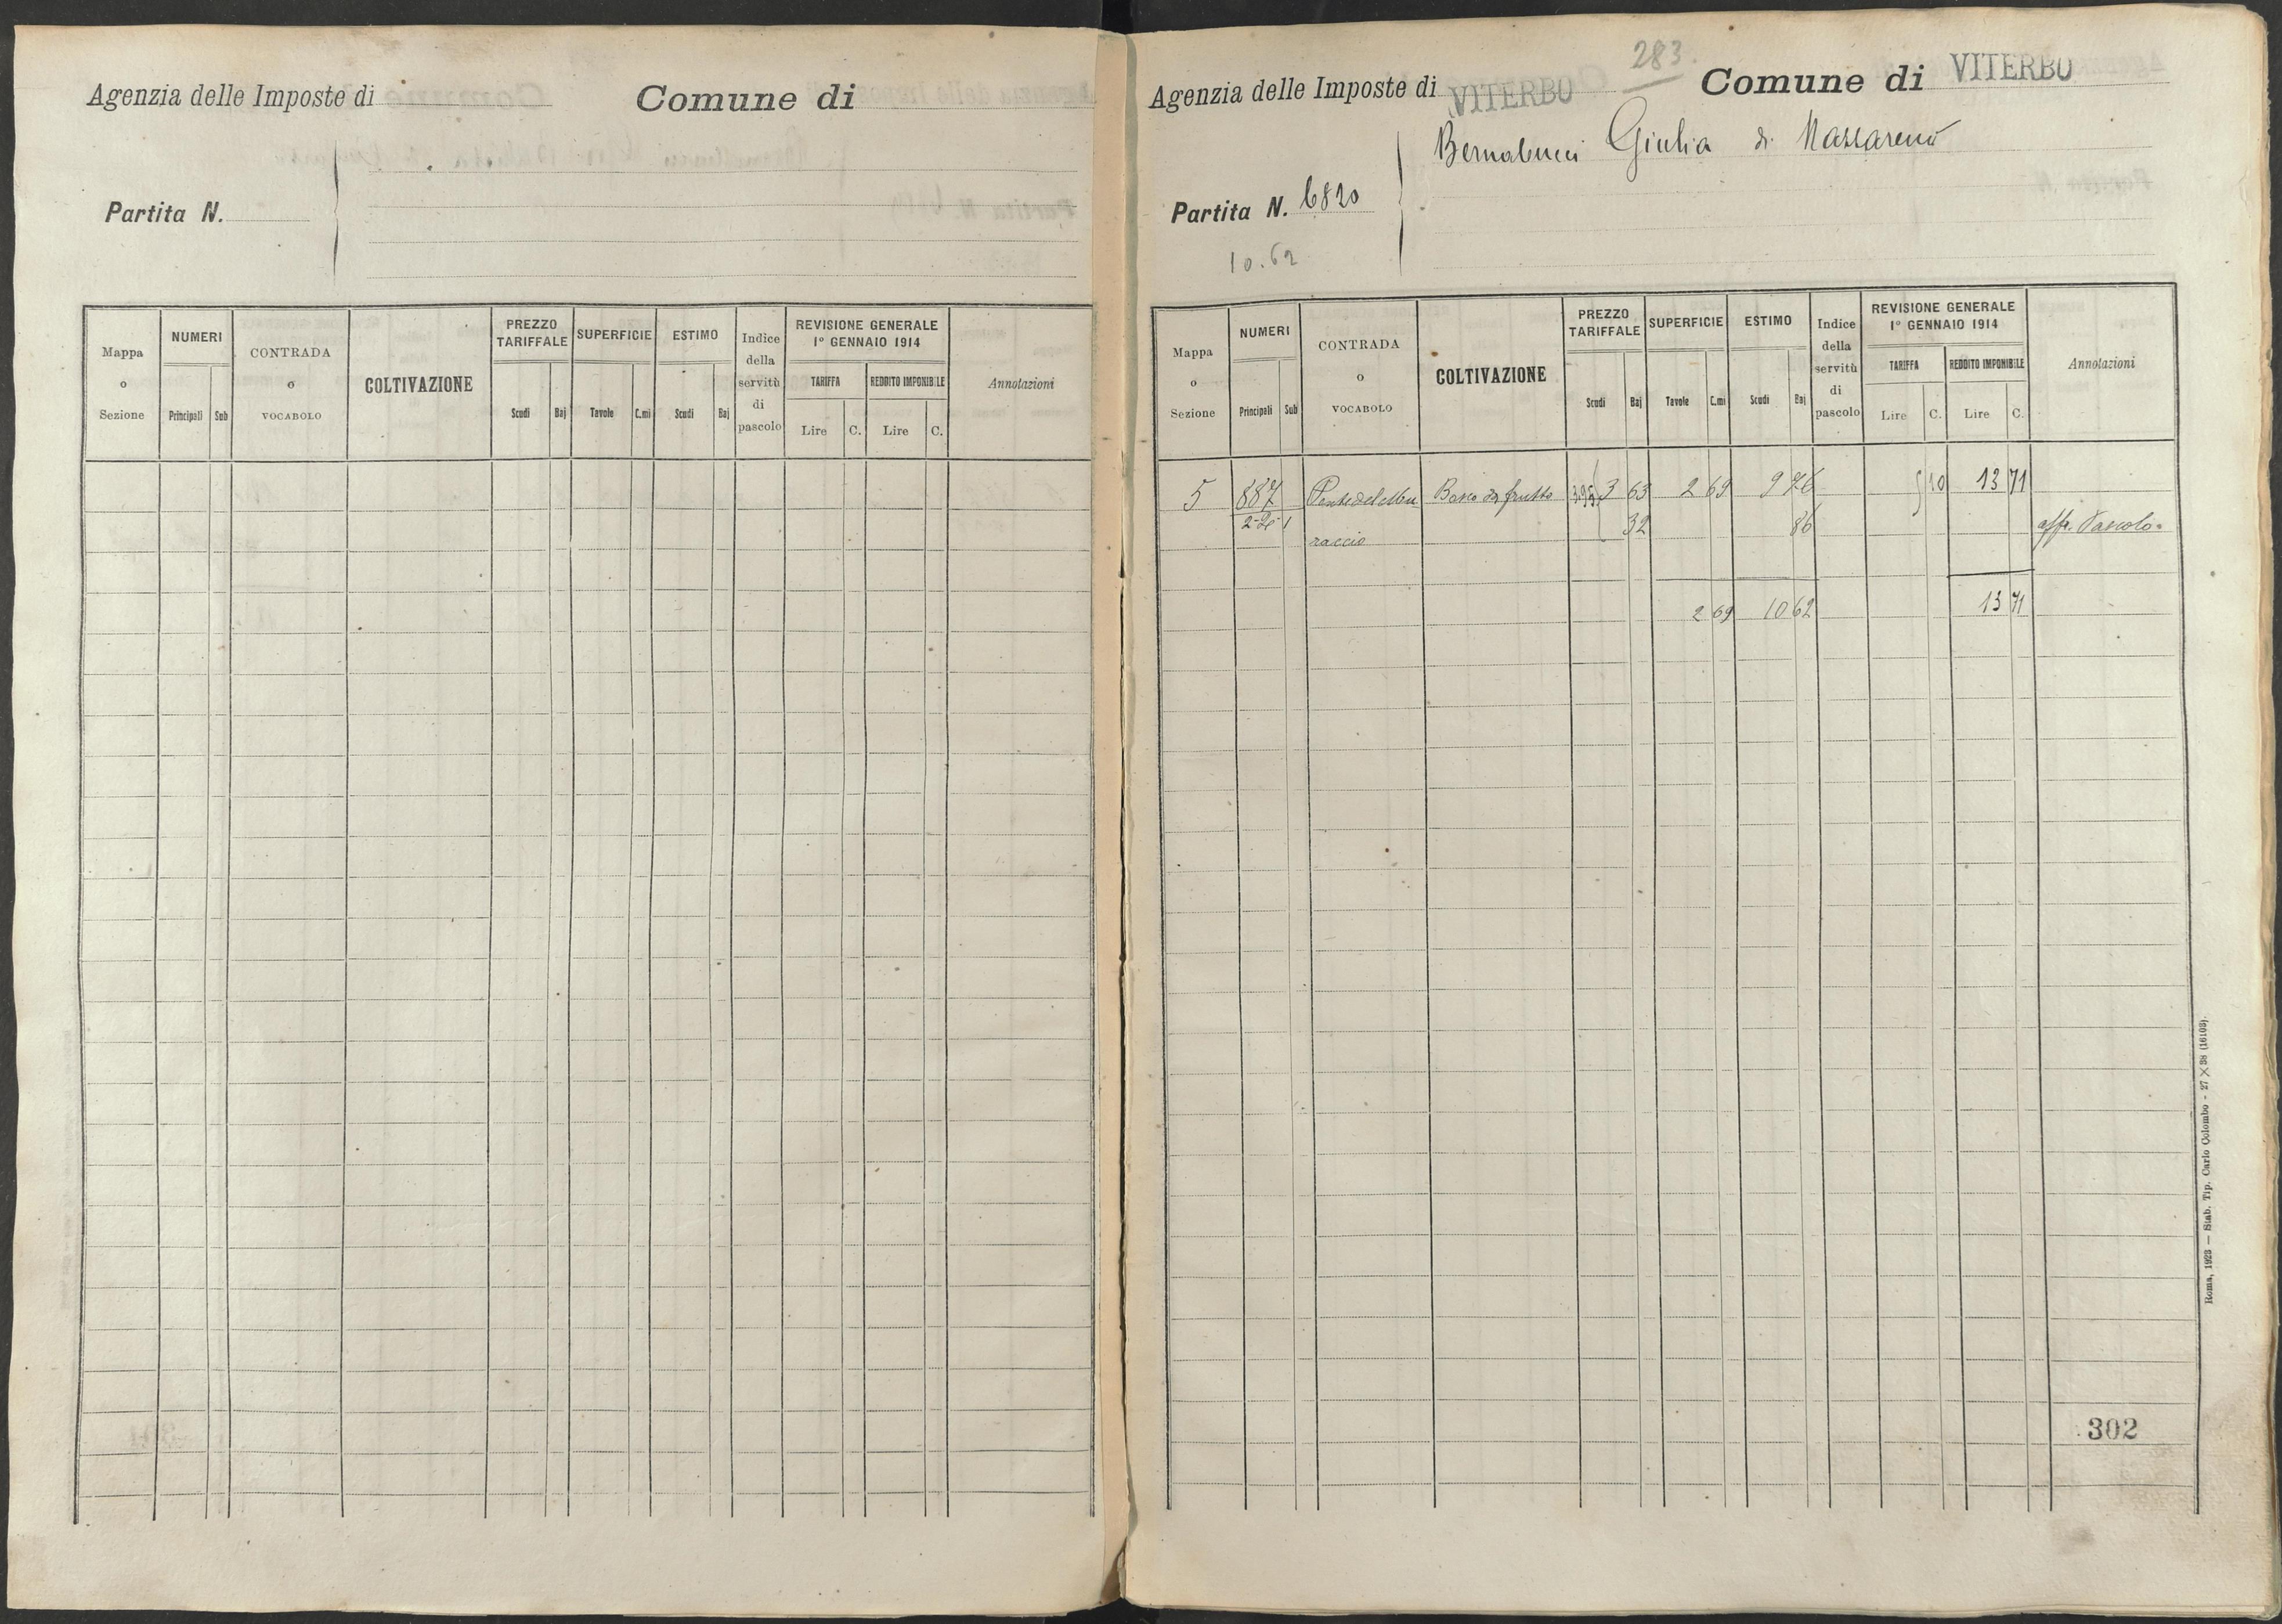 Agenzia delle Imposte di
Comune di
Partita N.
Mappa o Sezione
NUMERI
Principali
Sub
CONTRADA o VOCABOLO
COLTIVAZIONE
PREZZO TARIFFALE
Scudi
Baj
SUPERFICIE
Tavole
C.mi
ESTIMO
Scudi
Baj
Indice della servitù di pascolo
REVISIONE GENERALE
1° GENNAIO 1914
TARIFFA
REDDITO IMPONIBILE
Lire
C.
Lire
C.
Annotazioni
283.
Agenzia delle Imposte di VITERBO
Comune di VITERBO
Bernabucci Giulia di Nazzareno
Partita N. 6820
10.62
Mappa o Sezione
NUMERI
Principali
Sub
CONTRADA o VOCABOLO
COLTIVAZIONE
PREZZO TARIFFALE
Scudi
Baj
SUPERFICIE
Tavole
C.mi
ESTIMO
Scudi
Baj
Indice della servitù di pascolo
REVISIONE GENERALE
1° GENNAIO 1914
TARIFFA
REDDITO IMPONIBILE
Lire
C.
Lire
C.
Annotazioni
5 887 Bosco da frutto 3.95 3 63 2 69 9 76 5 10 13 71
32 86 Pascolo
raccio
2 69 10 62 13 71
302
Roma, 1923 — Stab. Tip. Carlo Colombo - 27 × 38 (16103).